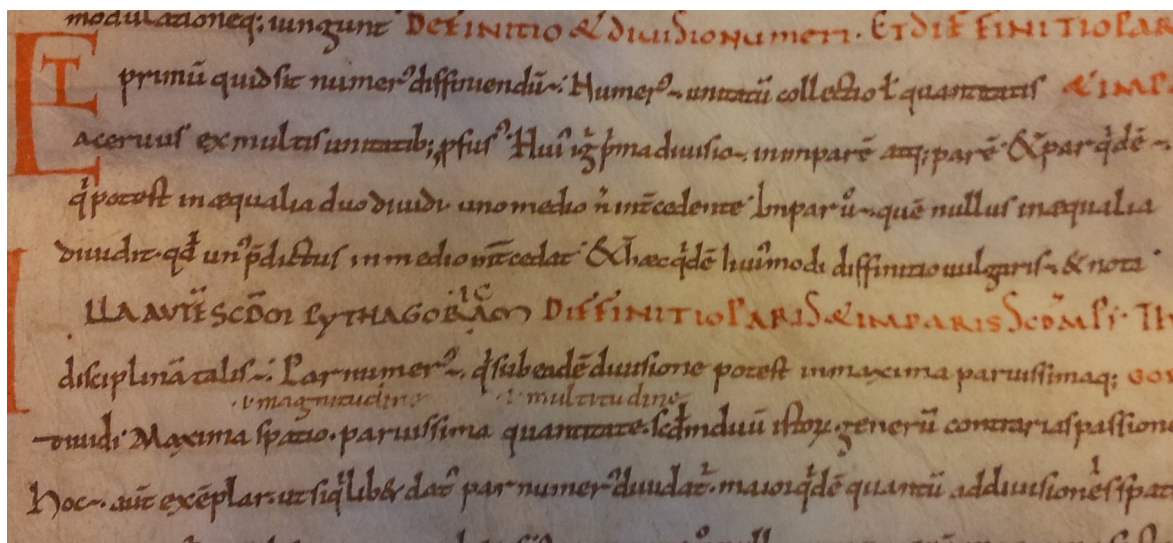 modulationeq; iungunt DEFINITIO & diuisio numeri. ET DIFFINITIO PAR
ET primũ quid sit numerꝰ diffiniendũ ÷. Numerꝰ ÷ unitatũ collectio ł quantitatis & IMPA
aceruus ex multis unitatib; ꝓfusꝰ. Huiꝰ igͥ pͥma diuisio ÷ in inparẽ atq; parẽ. &̃ par qͥdẽ ÷
qͥ potest in æqualia duo diuidi. uno medio ñ int̃cedente. Inpar ũo ÷ quẽ nullus in æqualia
diuidit. qđ unꝰ p̃dictus in medio int̃cedat. &̃ hæc qͥdẽ huiꝰmodi diffinitio uulgaris ÷ & nota
ILLA AUTẼ SCĐM PYTHAGORICAM DIFFINITIO PARIS & IMPARIS SCĐM
disciplinã talis ÷. Par numerꝰ ÷. qͥ sub eadẽ diuisione potest in maxima paruissimaq;
.i. magnitudine .i. multitudine
diuidi. Maxima spatio. paruissima quantitate. scđm duũ istoꝝ generũ contrarias passione
Hoc ÷. aut̃ exẽplar. ut siqͥs lib& datꝰ par numerꝰ diuidatͬ. maior qͥdẽ quantũ ad diuisionẽ spat